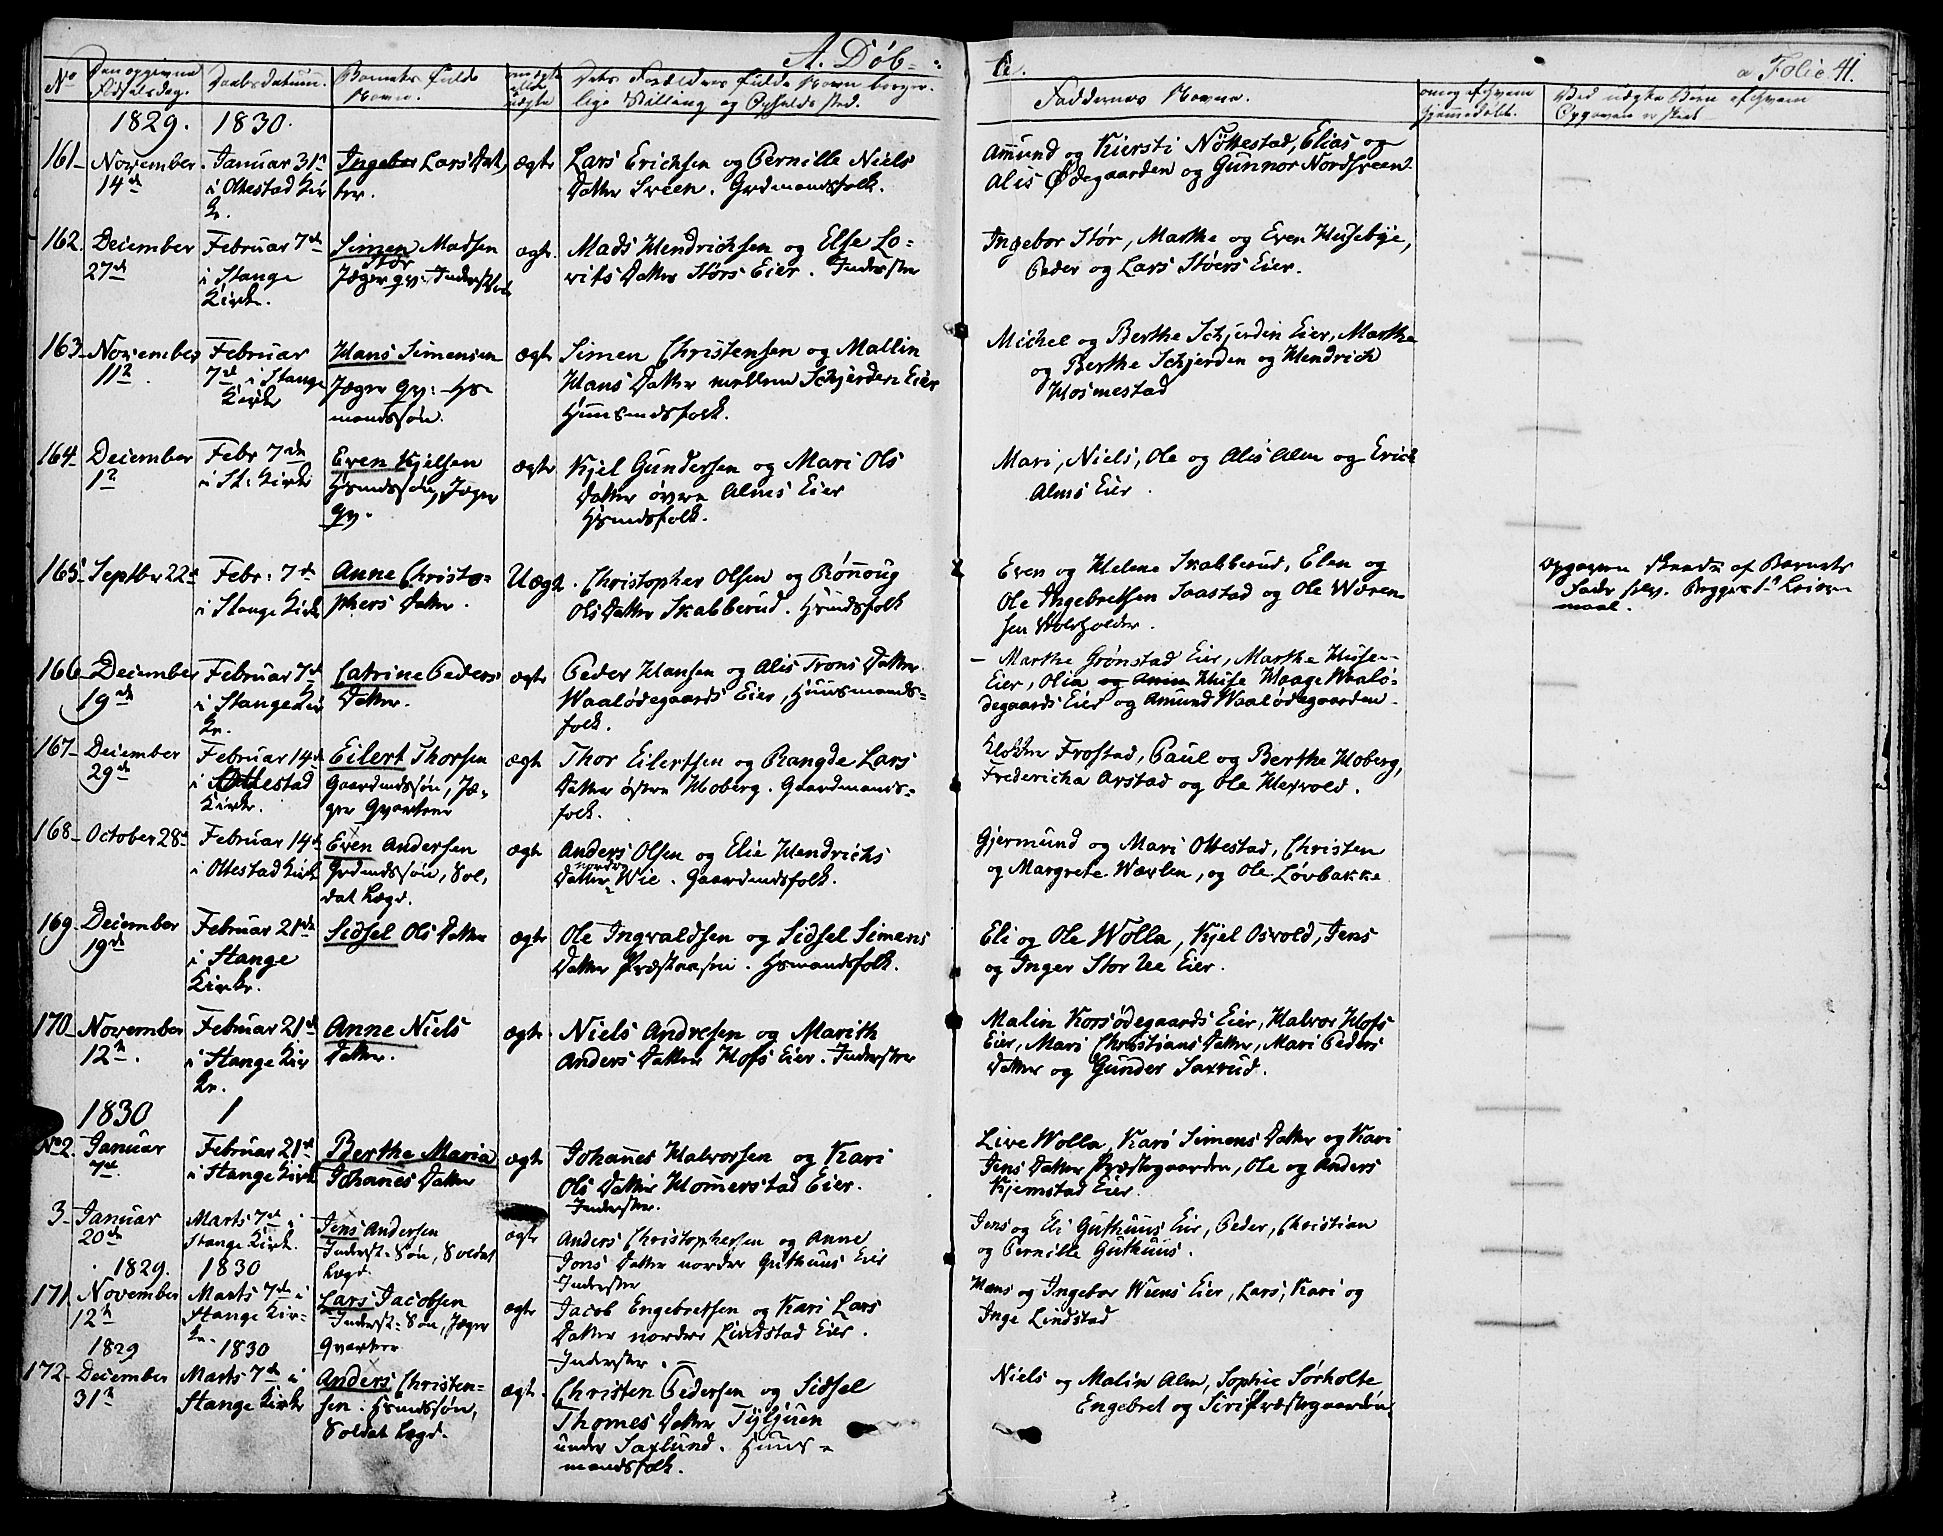 A. Døb-
te.
a Folio 41.
No
Den opgivne
Fødselsdag.
Daabsdatum.
Barnets fulde
Navn.
om ægte
eller
uægte
Dets Forældres fulde Navn borger-
lige Stilling og Opholdssted.
Faddernes Navne.
om og af hvem
hjemmedøbt.
Ved uægte Børn af hvem
Opgaven er skeet
1829. 1830.
161-
November
14de
Januar 31te
i Ottestad Kir
ke.
Ingebor Lars Dat,
ter.
ægte
Lars Erichsen og Pernille Niels
Datter Sveen. Grdmandsfolk.
Amund og Kiersti Nøttestad, Elias og
Alis Ødegaarden og Gunnor Nordsveen.
162.
December
27de
Februar 7de
i Stange
Kirke.
Simen Madsen
Stør
Jæger qv: Inderst Søn
ægte.
Mads Hendrichsen og Else Lo-
rits Datter Størs Eier. Inderster
Ingebor Stør, Marthe og Even Husebye,
Peder og Lars Støers Eier.
163-
November
11te
Februar
7de i Stange
Kirke
Hans Simensen
Jæger qv: Hs-
mandssøn.
ægte
Simen Christensen og Mallin
Hans Datter mellem Schjerden Eier
Huusmdsfolk.
Michel og Berthe Schjerden Eier, Marthe
og Berthe Schjerden og Hendrich
Hosmestad
164-
December
1te
Febr 7de
i St: Kirke
Even Kjelsen
Hsmdssøn, Jæger
qv.
ægte
Kjel Gundersen og Mari Ols
Datter øvre Alms Eier
Hsmdsfolk.
Mari, Niels, Ole og Alis Alm og Erich
Alms Eier.
165-
Septber 22de
Febr: 7de
i Stange Kirke
Anne Christo-
phers Datter.
Uægte.
Christopher Olsen og Rønnoug
Ols Datter Skabberud. Hsmdsfolk
Even og Helene Skabberud, Elen og
Ole Ingebretsen Saastad og Ole Waren-
sen Stolesholder.
Opgaven skeede af Barnets
Fader selv. Begges 1te Leier-
maal.
166-
December
19de
Februar 7de
i Stange Kir
ke.
Catrine Peders
Datter.
ægte
Peder Hansen og Alis Trons Datter
Waalødegaards Eier, Huusmands-
folk.
- Marthe Grønstad Eier, Marthe Huse-
Eier, Olia og Anne Huse Haage Waalø-
degaards Eier og Amund Waalødegaarden.
167-
December
29de
Februar 14de
i Ottestad
Kirke.
Eilert Thorsen
Gaardmdssøn, Jæ-
ger Qvarteer
ægte
Thor Eilertsen og Rangde Lars
Datter østre Hoberg. Gaardmands-
folk.
Klokker Frostad, Paul og Berthe Hoberg,
Fredericha Arstad og Ole Hexvold.
168-
October 28de
Februar 14de
i Ottestad Kirke
Even Andersen
Grdmdssøn, Sol,
dat Lægd.
ægte
Anders Olsen og Elie Hendrichs
nordre
Datter Wie. Gaardmdsfolk.
Gjermund og Mari Ottestad, Christen
og Margrete Wæxlen, og Ole Løvbakke
169-
December
19de
Februar 21de
i Stange
Kirke.
Sidsel Ols Datter
ægte
Ole Ingvaldsen og Sidsel Simens
Datter Præsteaasen. Hsmandsfolk.
Eli og Ole Wolla, Kjel Osvold, Jens
og Inger Stor Lee Eier.
170-
November
12te.
Februar 21de
i Stange Kir
ke.
Anne Niels
Datter.
ægte.
Niels Andresen og Marith
Anders Datter Hofs Eier. Inderster
Malin Korsødegaards Eier, Halvor Hofs
Eier, Mari Christians Datter, Mari Peders
Datter og Gunder Saxrud.
1830 1
No 2.
Januar
7de.
Februar 21de
i Stange Kirke
Berthe Maria
Johanes Datter
ægte
Johanes Halvorsen og Kari
Ols Datter Homerstad Eier.
Inderster.
Live Wolla, Kari Simens Datter og Kari
Jens Datter Præstegaarden, Ole og Anders
Kjemstad Eier.
3-
Januar
20de
Marts 7de i
Stange Kirke.
Jens Andersen
Inderst-Søn, Soldat
Lægd.
ægte
Anders Christophersen og Anne
Jons Datter nordre Guthuus Eier
Inderster
Jens og Eli Guthuus Eier, Peder, Christian
og Pernille Guthuus.
1829. 1830
171.
November
12te
Marts 7de i
Stange Kir-
ke.
Lars Jacobsen
Inderst-Søn, Jæger
Qvarteer
ægte
Jacob Engebretsen og Kari Lars
Datter nordre Lindstad Eier.
Inderster.
Hans og Ingebor Wiens Eier, Lars, Kari og
Inge Lindstad
1829 1830
172-
December
31te
Marts 7de i
Stange Kirke
Anders Christen-
sen. Hsmdssøn,
Soldat Lægd.
ægte.
Christen Pedersen og Sidsel
Thomes Datter Tyljuen
under Saxlund. Huus-
mandsfolk.
Niels og Malin Alm, Sophie Sørholte
Engebret og Siri Præstegaarden.